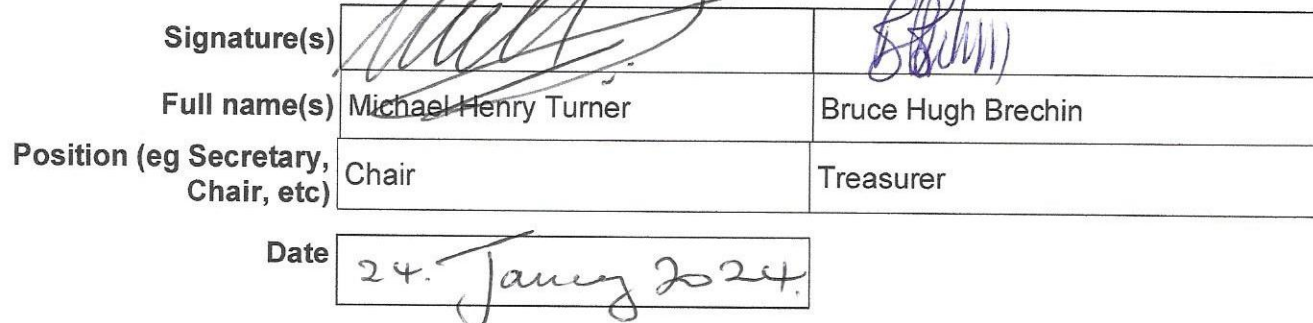 Signature(s)
Full name(s) Michael Henry Turner Bruce Hugh Brechin
Position (eg Secretary, Chair, etc) Chair Treasurer
Date 24. January 2024.